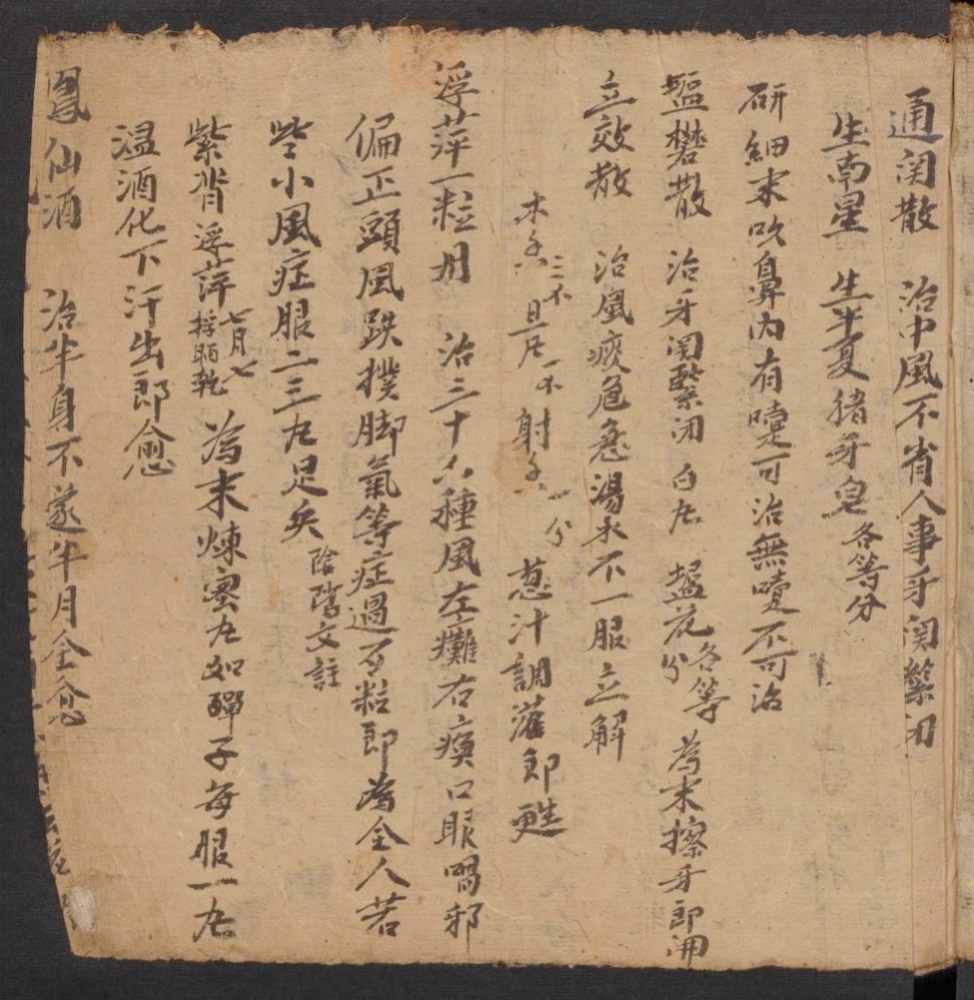 通関散　治中風不省人事牙関緊闭
生南星　生半夏　猪牙皂各等分
研細末吹鼻内有嚏可治無嚏不可治
塩礬散　治牙関緊闭　白凡　塩花各等分　為末擦牙即開
立效散　治風痰危急湯水不一服立解
木香三个　旦凡一个　射香一分　葱汁調灌即甦
浮萍一粒丹　治三十六種風左癱右瘓口眼喎邪
偏正頭風跌撲脚氣等症過百粒即為全人若
些小風症服二三九足矣　陰隲文註
紫背浮萍七月七採晒乾　為末煉蜜丸如彈子每服一丸
温酒化下汗出即愈
鳳仙酒　治半身不遂半月全愈